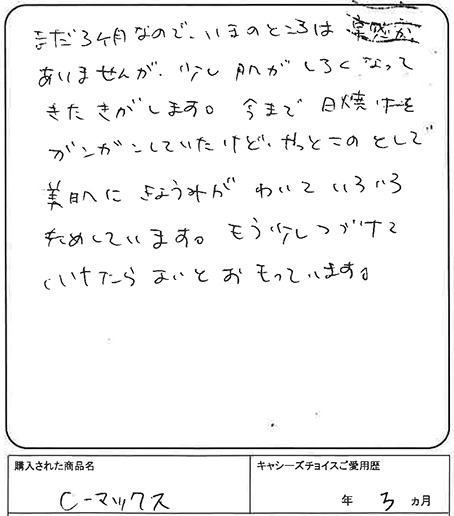 まだ3ヶ月なので、いまのところは実感が
ありませんが、少し肌がしろくなって
きたきがします。今まで日焼けを
ガンガンしていたけど、やっとこのとしで
美肌にきょうみがわいていろいろ
ためしています。もう少しつづけて
いけたらよいとおもっています。
購入された商品名
キャシーズチョイスご愛用歴
C-マックス
年 3 ヵ月